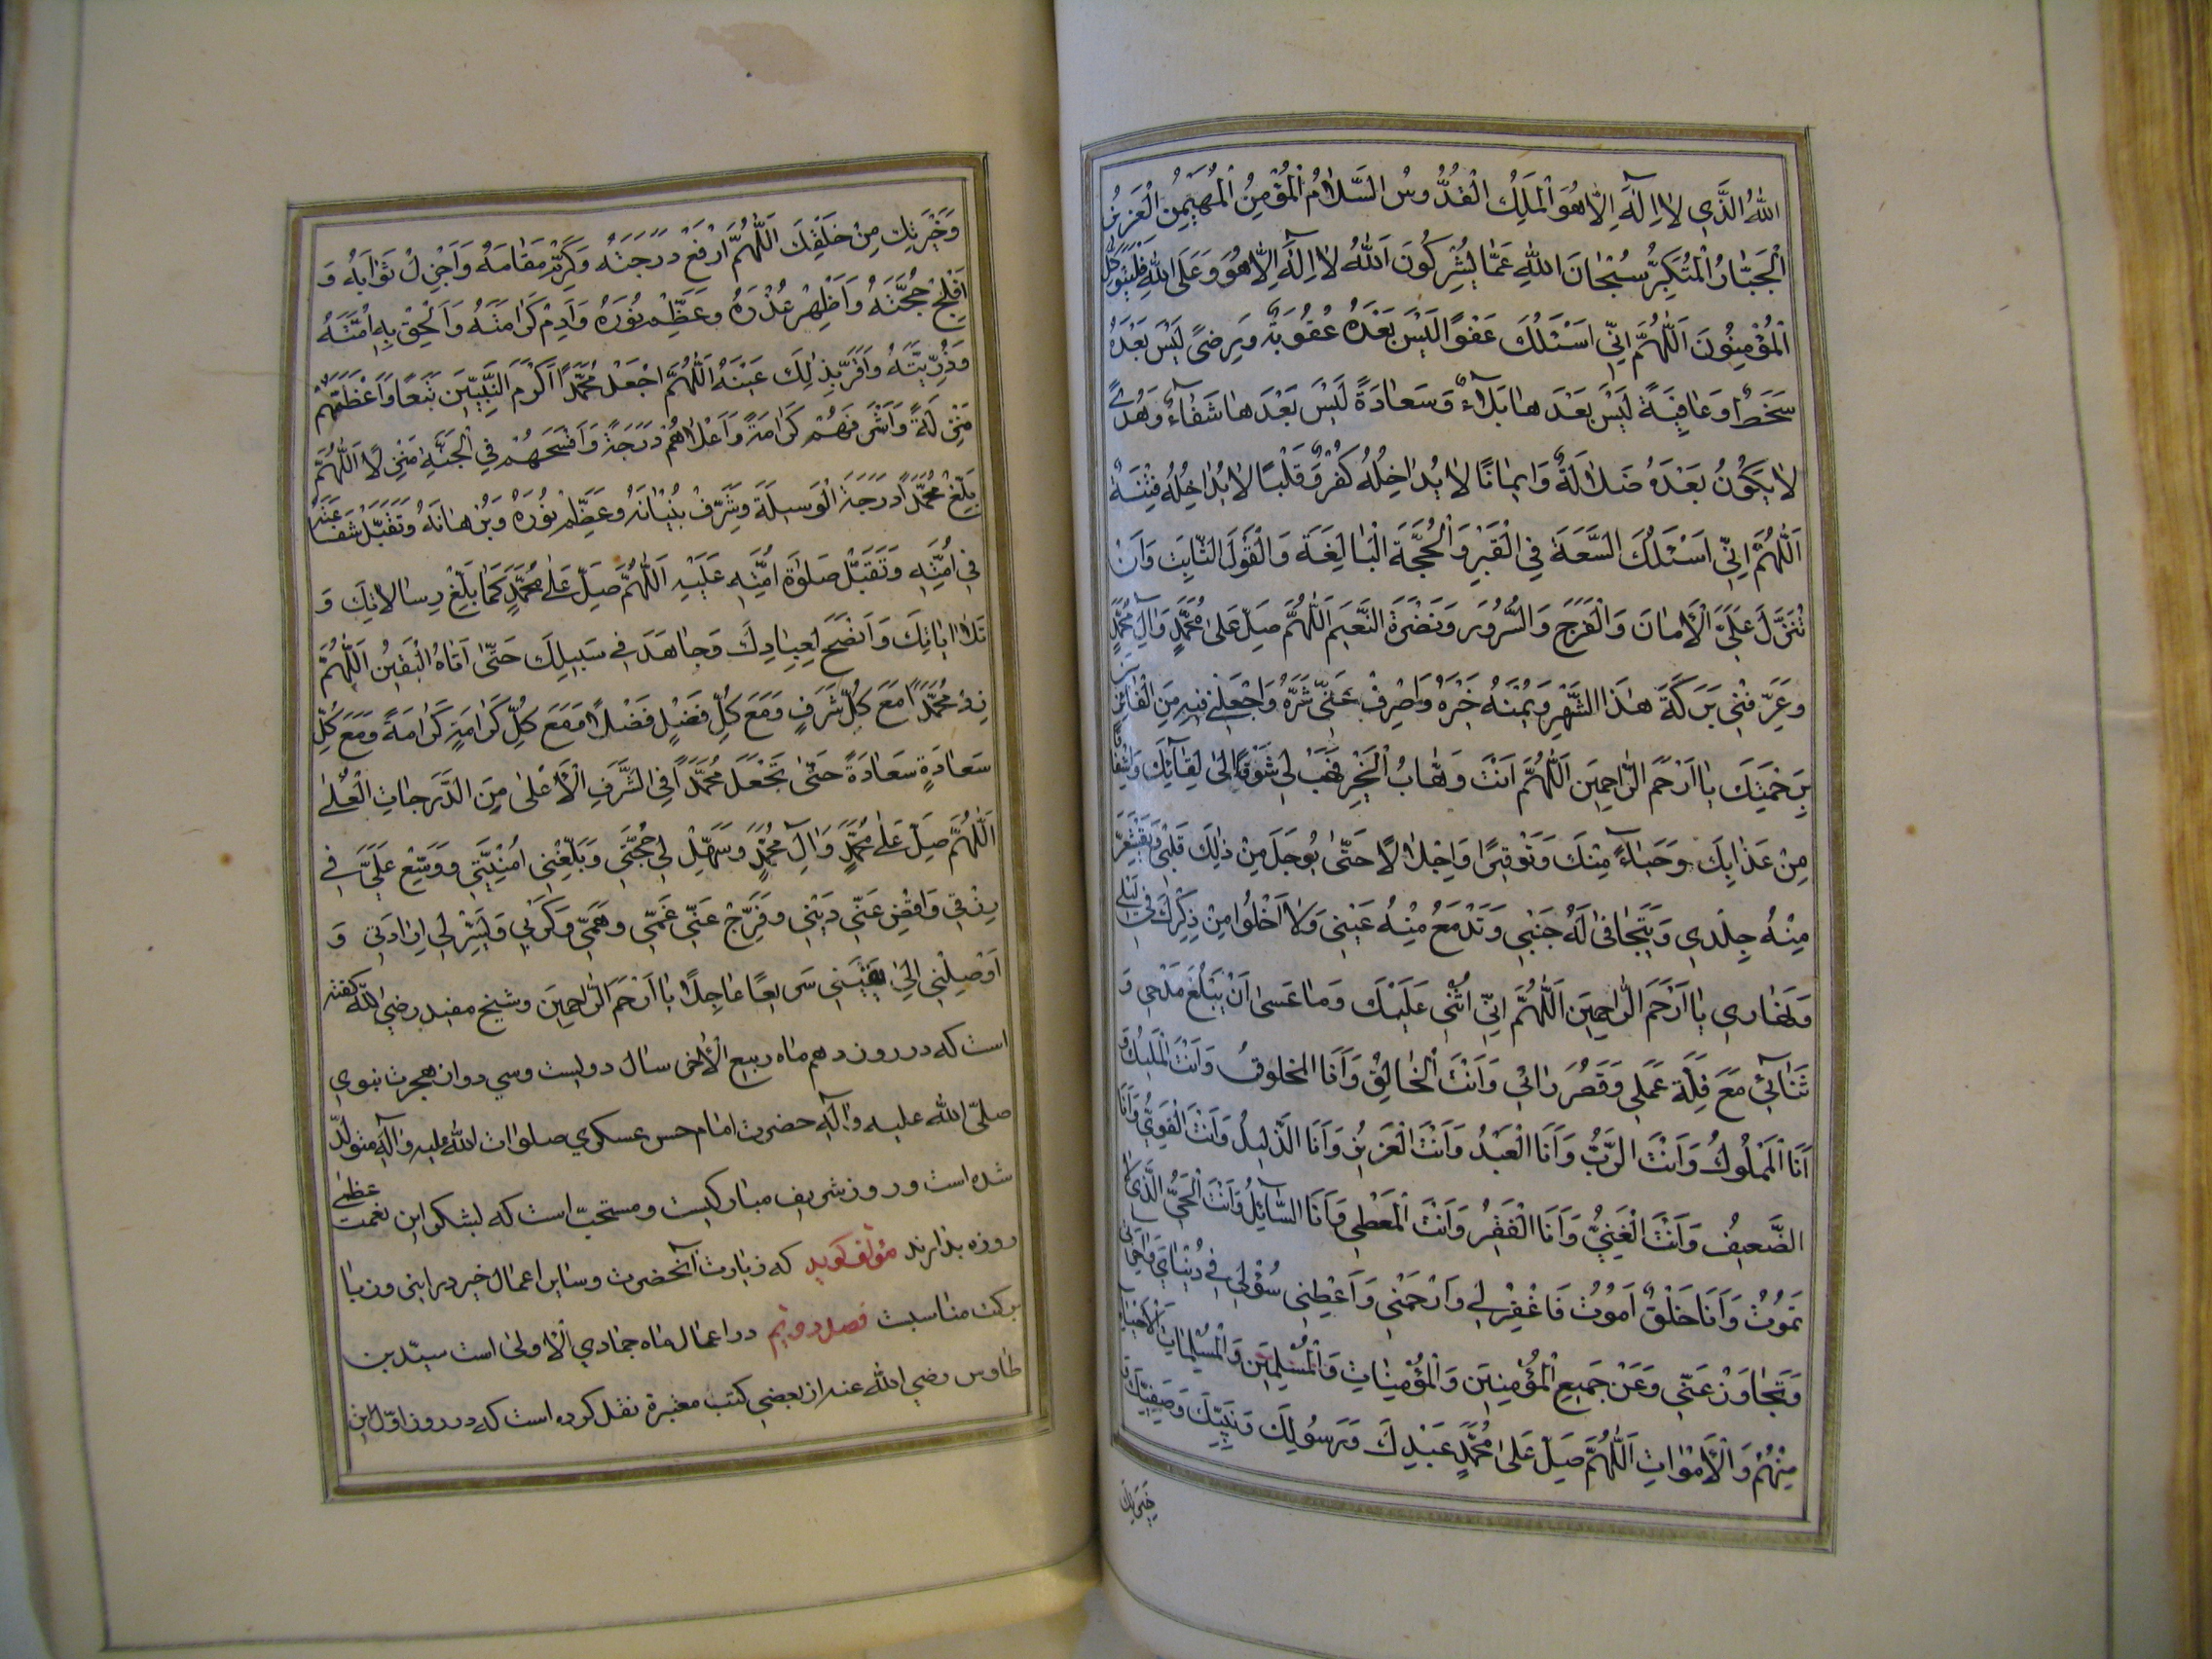 اَللهُ الَّذي لا اِلٰهَ اِلّا هُوَ الْمَلِكُ الْقُدُّوسُ السَّلامُ الْمُؤْمِنُ الْمُهَيْمِنُ الْعَزيزُ
الْجَبّارُ الْمُتَكَبِّرُ سُبْحانَ اللهِ عَمّا يُشْرِكُونَ اَللهُ لا اِلٰهَ اِلّا هُوَ وَعَلَى اللهِ فَلْيَتَوَكَّلِ
الْمُؤْمِنُونَ اَللّٰهُمَّ اِنّي اَسْئَلُكَ عَفْوًا لَيْسَ بَعْدَهُ عُقُوبَةٌ وَرِضىً لَيْسَ بَعْدَهُ
سَخَطٌ وَعافِيَةً لَيْسَ بَعْدَها بَلآءٌ وَسَعادَةً لَيْسَ بَعْدَها شَقاءٌ وَهُدىً
لا يَكُونُ بَعْدَهُ ضَلالَةٌ وَايمانًا لا يُداخِلُهُ كُفْرٌ وَقَلْبًا لا يُداخِلُهُ فِتْنَةٌ
اَللّٰهُمَّ اِنّي اَسْئَلُكَ السَّعَةَ فِي الْقَبْرِ وَالْحُجَّةَ الْبالِغَةَ وَالْقَوْلَ الثّابِتَ وَاَنْ
تُنَزِّلَ عَلَيَّ الْاَمانَ وَالْفَرَجَ وَالسُّرُورَ وَنَضْرَةَ النَّعيمِ اَللّٰهُمَّ صَلِّ عَلى مُحَمَّدٍ وَآلِ مُحَمَّدٍ
وَعَرِّفْني بَرَكَةَ هٰذَا الشَّهْرِ وَيُمْنَهُ خَيْرَهُ وَاصْرِفْ عَنّي شَرَّهُ وَاجْعَلْني فيهِ مِنَ الْفائِزينَ
بِرَحْمَتِكَ يا اَرْحَمَ الرّاحِمينَ اَللّٰهُمَّ اَنْتَ وَهّابُ الْخَيْرِ فَهَبْ لي شَوْقًا اِلى لِقآئِكَ وَاِشْفاقًا
مِنْ عَذابِكَ وَحَياءً مِنْكَ وَتَوْقيرًا وَاِجْلالًا حَتّى يُوجَلَ مِنْ ذٰلِكَ قَلْبي وَيَقْشَعِرَّ
مِنْهُ جِلْدي وَيَتَجافى لَهُ جَنْبي وَتَدْمَعُ مِنْهُ عَيْني وَلا اَخْلُوا مِنْ ذِكْرِكَ في لَيْلي
وَنَهاري يا اَرْحَمَ الرّاحِمينَ اَللّٰهُمَّ اِنّي اُثْني عَلَيْكَ وَما عَسى اَنْ يَبْلُغَ مَدْحي وَ
ثَنآئي مَعَ قِلَّةِ عَمَلي وَقَصْرِ رَائي وَاَنْتَ الْخالِقُ وَاَنَا الْمَخلوقُ وَاَنْتَ الْمَليكُ وَ
اَنَا الْمَمْلُوكُ وَاَنْتَ الرَّبُّ وَاَنَا الْعَبْدُ وَاَنْتَ الْعَزيزُ وَاَنَا الذَّليلُ وَاَنْتَ الْقَوِيُّ وَاَنَا
الضَّعيفُ وَاَنْتَ الْغَنِيُّ وَاَنَا الْفَقيرُ وَاَنْتَ الْمُعْطي وَاَنَا السّآئِلُ وَاَنْتَ الْحَيُّ الَّذي لا
تَمُوتُ وَاَنَا خَلْقٌ اَمُوتُ فَاغْفِرْ لي وَارْحَمْني وَاَعْطِني سُؤْلي في دُنْيايَ وَآخِرَتي
وَتَجاوَزْ عَنّي وَعَنْ جَميعِ الْمُؤْمِنينَ وَالْمُؤْمِناتِ وَالْمُسْلِمينَ وَالْمُسْلِماتِ الْاَحْياءِ
مِنْهُمْ وَالْاَمْواتِ اَللّٰهُمَّ صَلِّ عَلى مُحَمَّدٍ عَبْدِكَ وَرَسُولِكَ وَنَبِيِّكَ وَصَفِيِّكَ
وَخِيَرَتِكَ مِنْ خَلْقِكَ اَللّٰهُمَّ ارْفَعْ دَرَجَتَهُ وَكَرِّمْ مَقامَهُ وَاَجْزِلْ ثَوابَهُ وَ
اَفْلِجْ حُجَّتَهُ وَاَظْهِرْ عُذْرَهُ وَعَظِّمْ نُورَهُ وَاَدِمْ كَرامَتَهُ وَاَلْحِقْ بِهِ اُمَّتَهُ
وَذُرِّيَّتَهُ وَاَقِرَّ بِذٰلِكَ عَيْنَهُ اَللّٰهُمَّ اجْعَلْ مُحَمَّدًا اَكْرَمَ النَّبِيّينَ تَبَعًا وَاَعْظَمَهُمْ
مَنْزِلَةً وَاَشْرَفَهُمْ كَرامَةً وَاَعْلاهُمْ دَرَجَةً وَاَفْسَحَهُمْ فِي الْجَنَّةِ مَنْزِلًا اَللّٰهُمَّ
بَلِّغْ مُحَمَّدًا دَرَجَةَ الْوَسيلَةِ وَشَرِّفْ بُنْيانَهُ وَعَظِّمْ نُورَهُ وَبُرْهانَهُ وَتَقَبَّلْ شَفاعَتَهُ
في اُمَّتِهِ وَتَقَبَّلْ صَلوةَ اُمَّتِهِ عَلَيْهِ اَللّٰهُمَّ صَلِّ عَلى مُحَمَّدٍ كَما بَلَّغَ رِسالاتِكَ وَ
تَلا اياتِكَ وَاَنْصَحَ لِعِبادِكَ وَجاهَدَ في سَبيلِكَ حَتّى اَتاهُ الْيَقينُ اَللّٰهُمَّ
زِدْ مُحَمَّدًا مَعَ كُلِّ شَرَفٍ وَمَعَ كُلِّ فَضْلٍ فَضْلًا وَمَعَ كُلِّ كَرامَةٍ كَرامَةً وَمَعَ كُلِّ
سَعادَةٍ سَعادَةً حَتّى تَجْعَلَ مُحَمَّدًا فِي الشَّرَفِ الْاَعْلى مِنَ الدَّرَجاتِ الْعُلى
اَللّٰهُمَّ صَلِّ عَلى مُحَمَّدٍ وَآلِ مُحَمَّدٍ وَسَهِّلْ لي حُجَّتي وَبَلِّغْني اُمْنِيَّتي وَوَسِّعْ عَلَيَّ في
رِزْقي وَاقْضِ عَنّي دَيْني وَفَرِّجْ عَنّي غَمّي وَهَمّي وَكَرْبي وَيَسِّرْ لي اِرادَتي وَ
اَوْصِلْني اِلى بُغْيَتي سَريعًا عاجِلًا يا اَرْحَمَ الرّاحِمينَ وشيخ مفيد رضي الله كفته
است كه در روز دهم ماه ربيع الآخر سال دويست وسي دو از هجرت نبوي
صلّى الله عليه وآله حضرت امام حسن عسكري صلوات الله عليه وآله متولّد
شده است وروز شريف مباركيست ومستحبّ است كه بشكر اين نعمت عظمى
روزه بدارند مؤلف كويد كه زيارت آنحضرت وساير اعمال خير در اين روز با
بركت مناسبت فصل دويّم در اعمال ماه جمادي الاولى است سيّد بن
طاوس رضي الله عنه از بعضي كتب معتبره نقل كرده است كه در روز اوّل اين